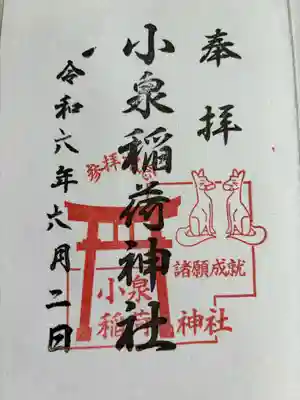 奉拝
小泉稲荷神社
令和六年六月二日
参拝
諸願成就
小泉
稲荷神社